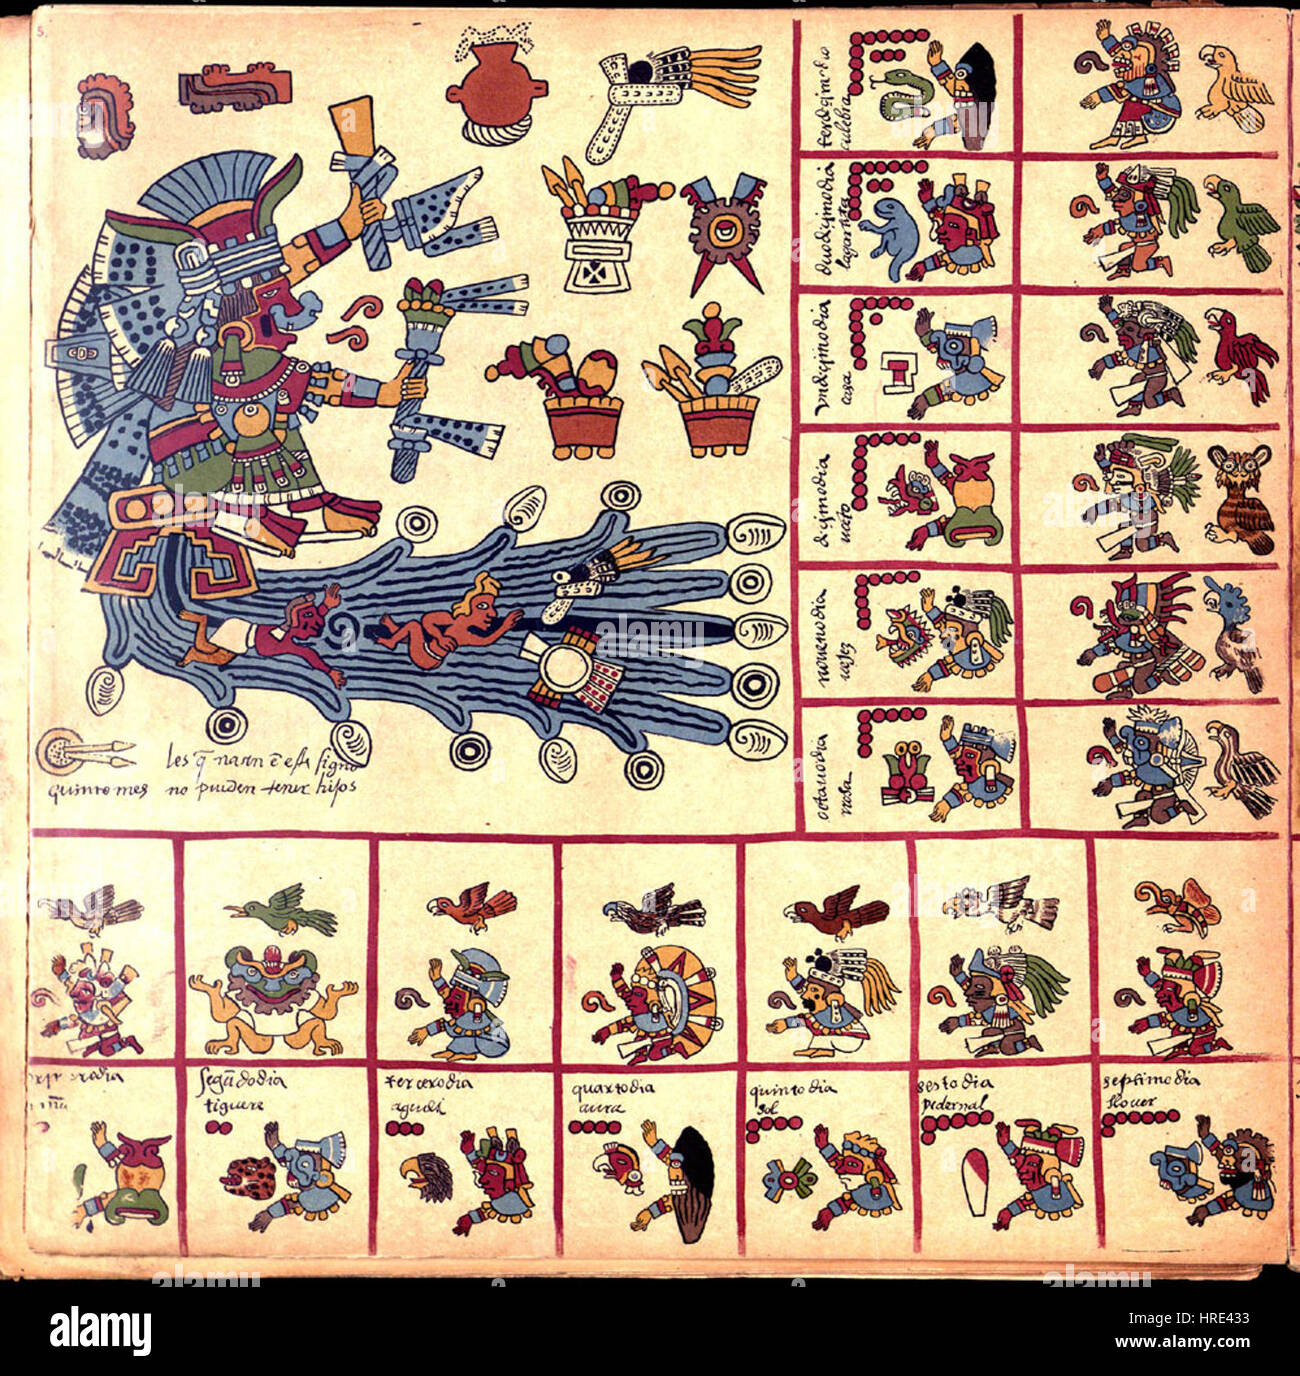 5
terdeçimodia
culebra
duodeçimodia
lagartixa
undeçimodia
casa
deçimodia
uiēto
nonenodia
octauodia
rrosa
les q̄ naçen ē este signo
quinto mes no pueden tener hijos
segūdodia
tiguere
terçerodia
aguila
quartodia
aura
quintodia
sol
sestodia
pedernal
septimodia
llouer
alamy
Image ID: HRE433
www.alamy.com